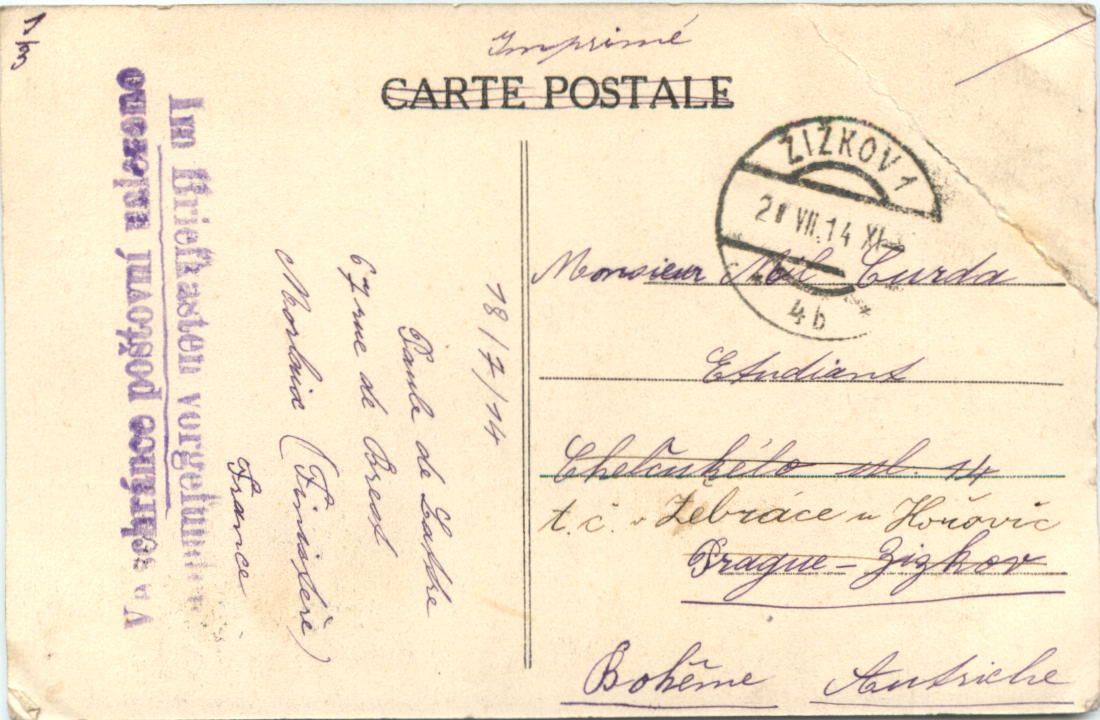 1/3
Imprimé
CARTE POSTALE
Ve schránce poštovní nalezeno
Im Briefkasten vorgefunden
18/7/14
Paule de Lattre
67 rue de Brest
Morlaix (Finistère)
France
ŽIŽKOV 1
VII.14 XI
4b
Monsieur Mil Curda
Etudiant
Chelčukélo ul. 14
t.č. v Žebráce u Hořovic
Prague-Zizkov
Bohême Autriche